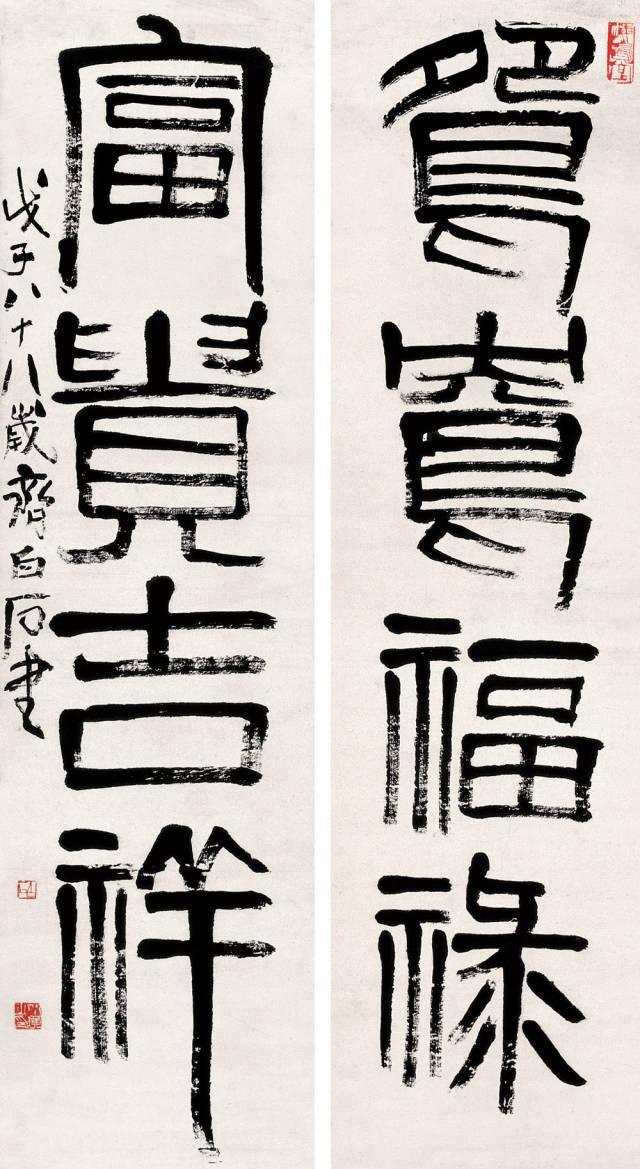 鴛鴦福祿
富貴吉祥
戊子八十八歲齊白石書